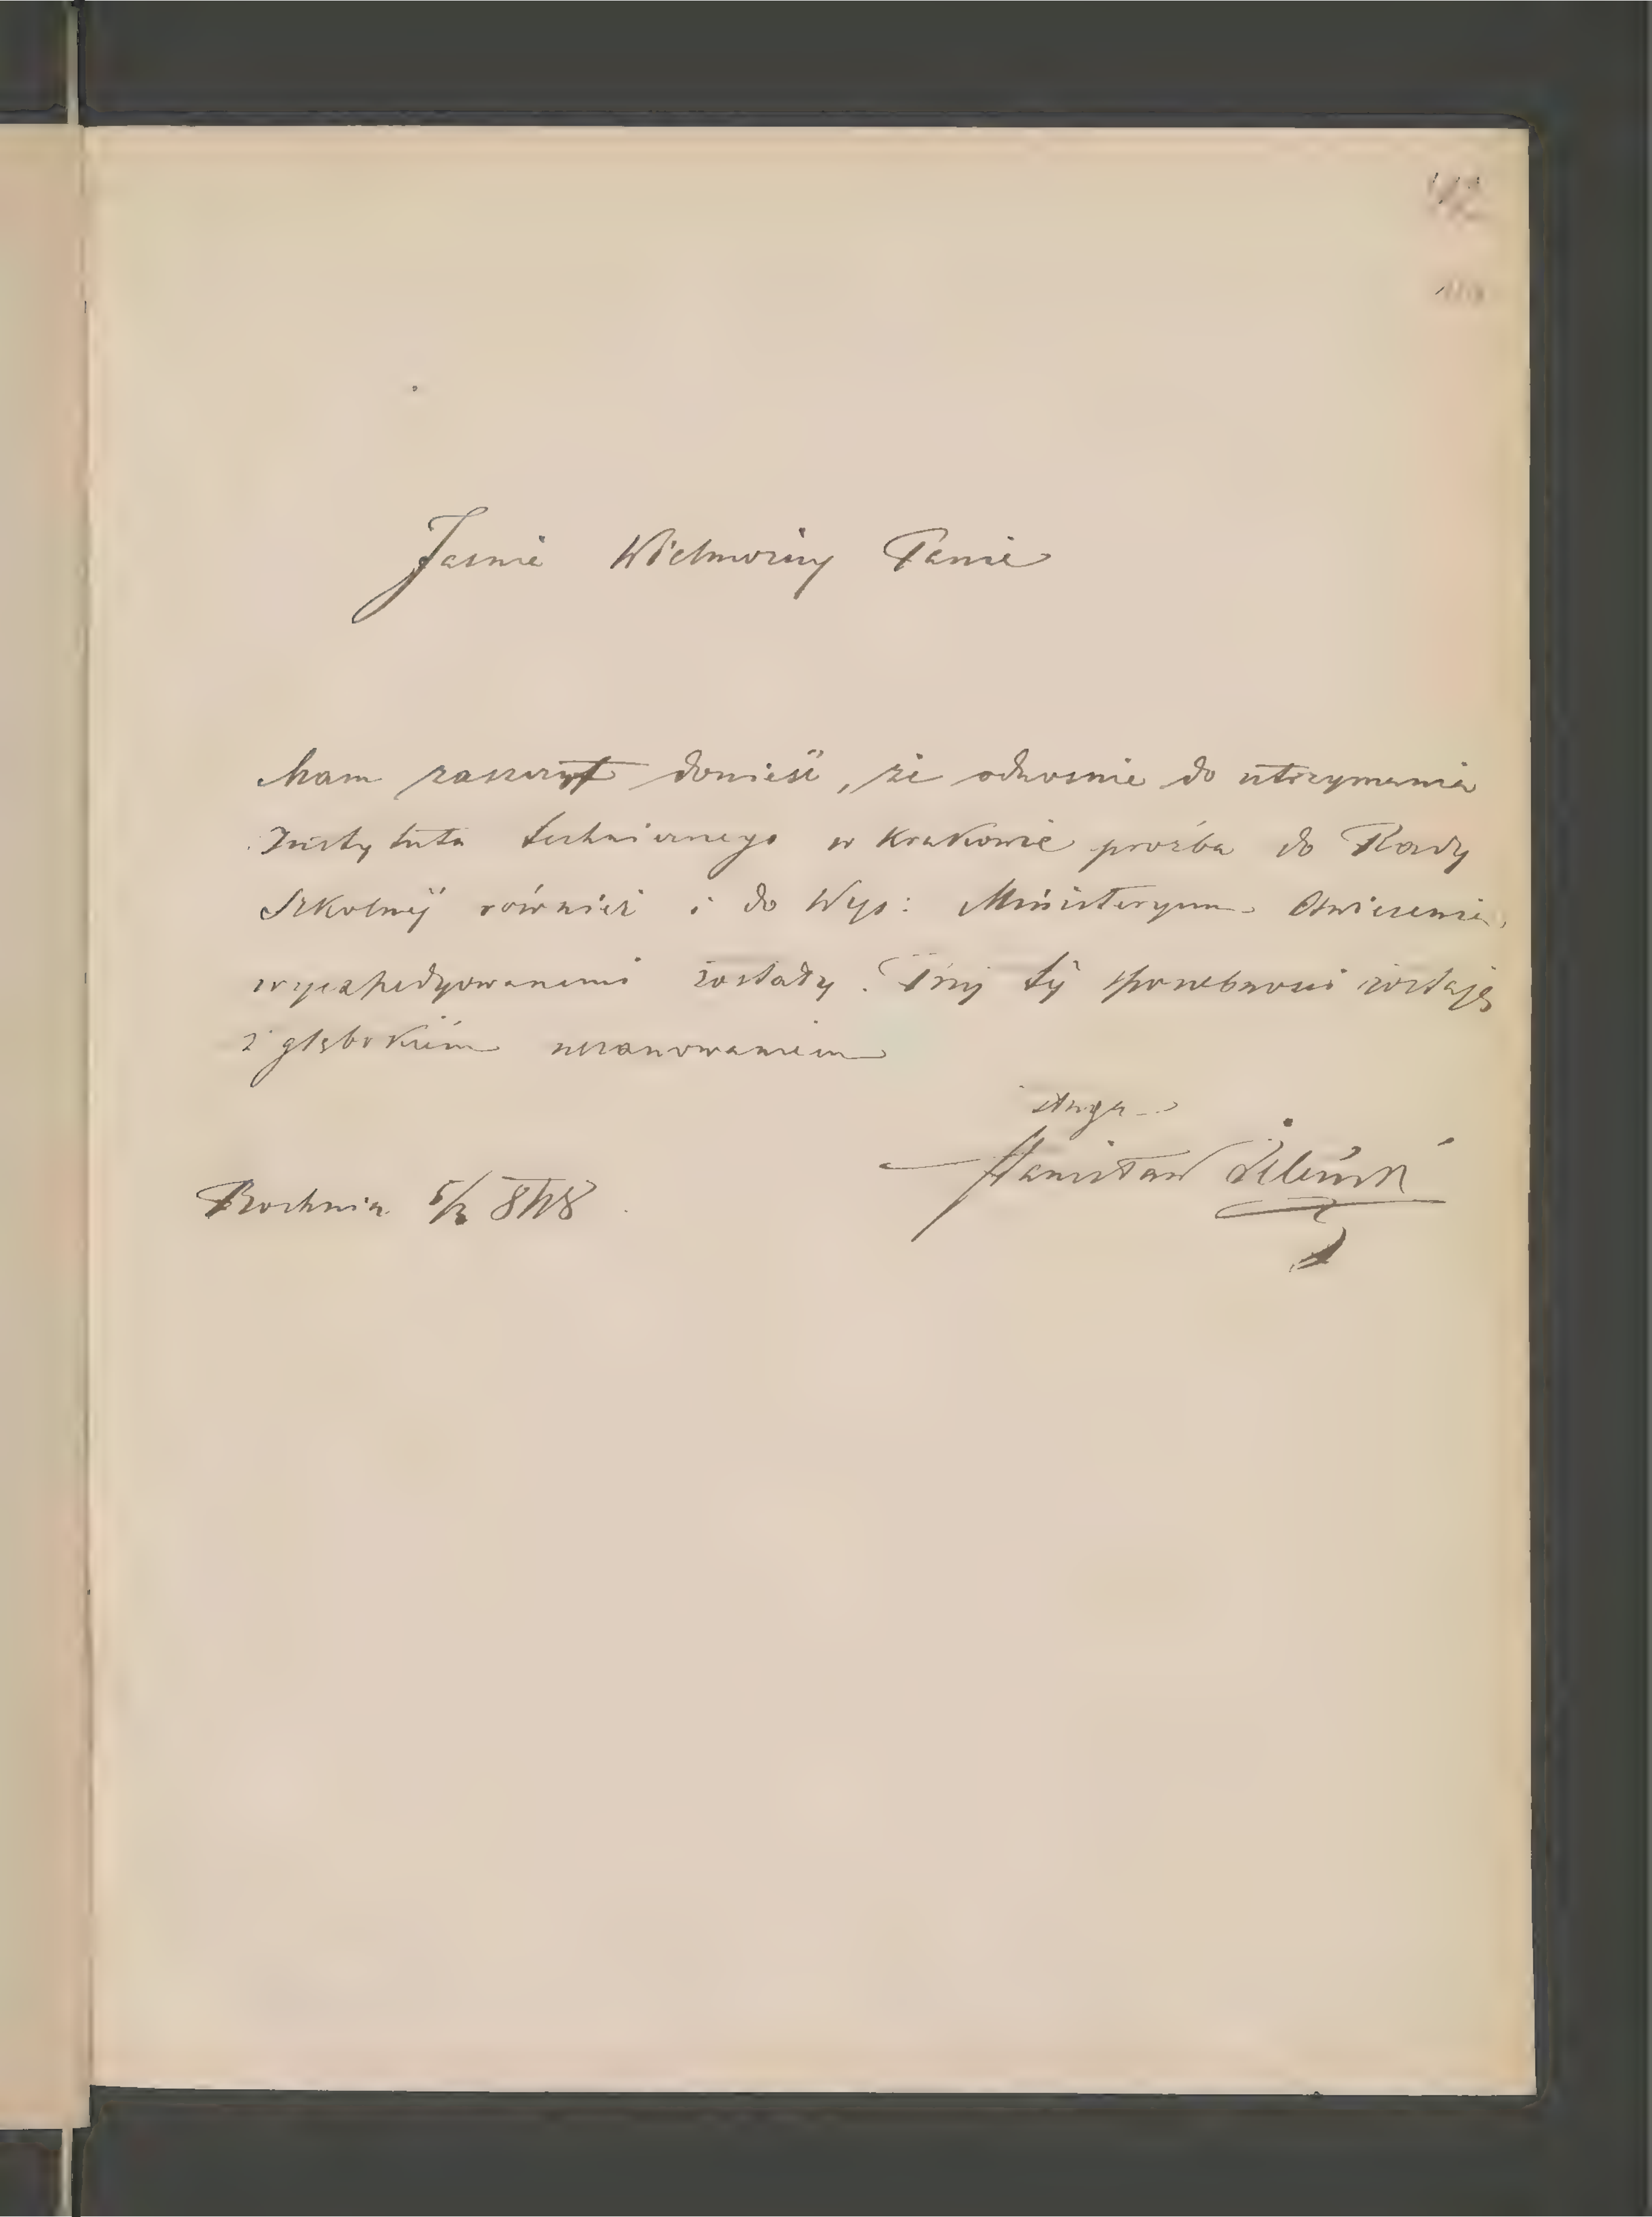 Jaśnie Wielmożny Panie
Mam zaszczyt donieść, że odnośnie do utrzymania
Instytuta technicznego w Krakowie prośba do Rady
Szkolnéj również i do Wys: Ministeryum Oświecenia
wyexpedyowanemi zostały. Przy téj sposobności zostaję
z głębokiém uszanowaniem
sługa
Stanisław Żeleński
Bochnia